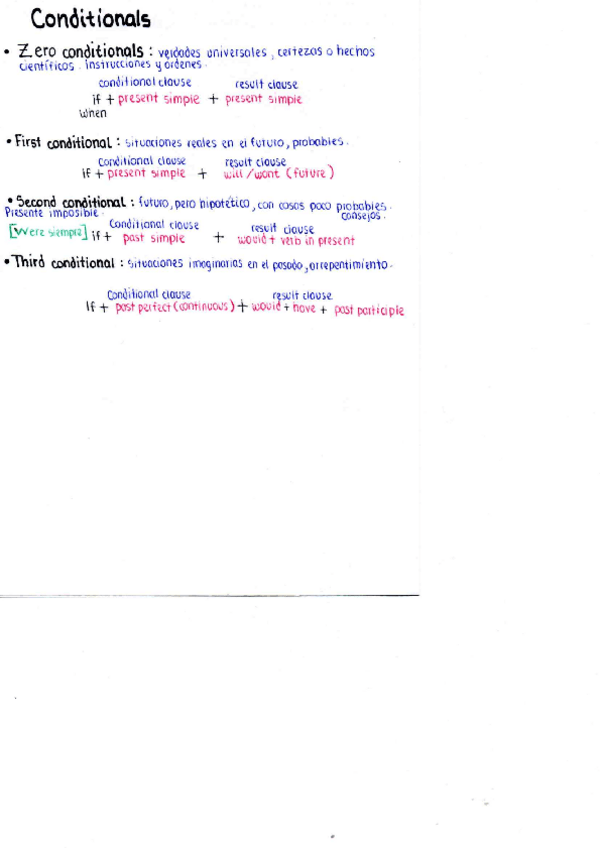 Conditionals
• Zero conditionals : verdades universales, certezas o hechos
científicos. Instrucciones y órdenes.
conditional clause result clause
if + present simple + present simple
When
• First conditional : situaciones reales en el futuro, probables.
Conditional clause result clause
if + present simple + will / wont (future)
• Second conditional : futuro, pero hipotético, con cosas poco probables.
Presente imposible. consejos.
Conditional clause result clause
[Were siempre] if + past simple + would + verb in present
• Third conditional : situaciones imaginarias en el pasado, arrepentimiento.
Conditional clause result clause
If + past perfect (continuous) + would + have + past participle